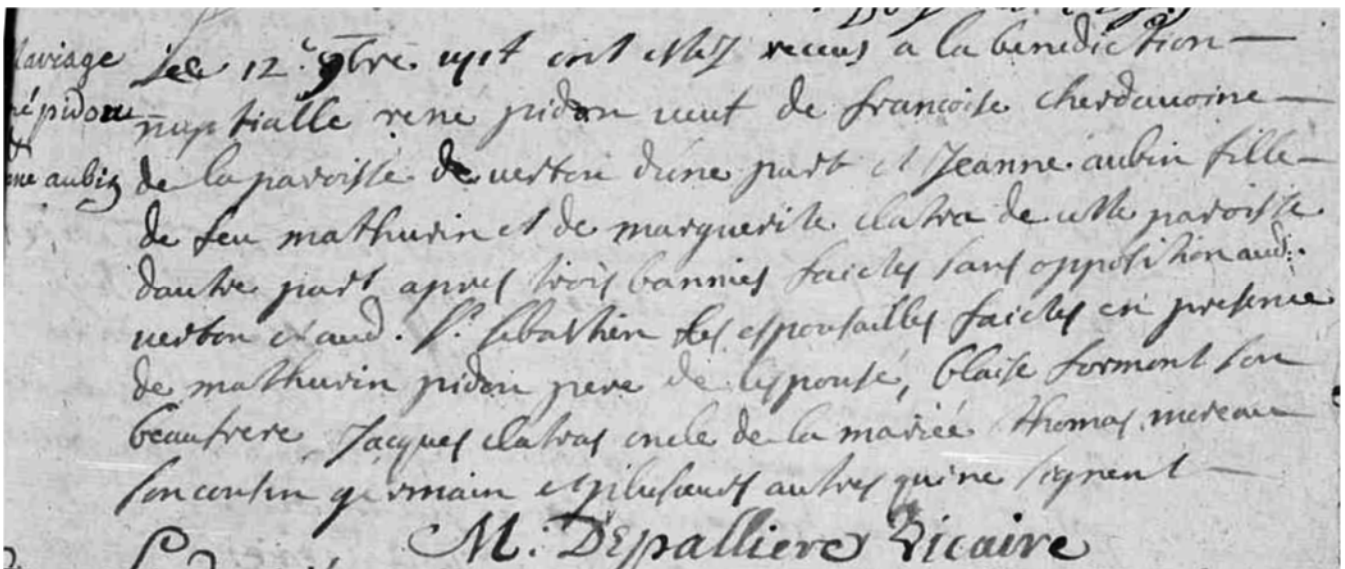 Mariage
né pidon
&
ne aubin
Lee 12.e 9bre. 1714 ont estez receus a la benediction
nuptialle rene pidon veuf de francoise cherdavoine
de la paroisse de verton d'une part et Jeanne aubin fille
de feu mathurin et de marguerite clatra de cette paroisse
dautre part apres trois bannies faictes sans opposition aud.
verton et aud. St. sebastien les espousailles faictes en presence
de mathurin pidon pere de lespousé, blaise formont son
beaufrere Jacques clatras oncle de la mariée thomas mereau
son cousin germain et plusieurs autres qui ne signent
M. Depalliere Vicaire